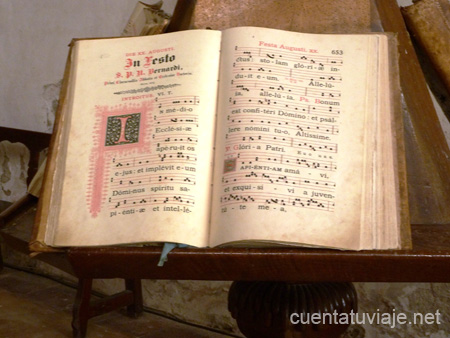 In Festo
S. P. N. Bernardi,
INTROITUS. VI. T.
IN medi-o
Ecclesi-æ
aperu-it os
e-jus: et implevit e-um
Dóminus spíritu sa-
pi-enti-æ et intel-lé-
Festa Augusti. 20. 653
ctus stolam glóri-æ in-
du-it e-um. Alle-lú-
ia, alle-lú-ia. Ps. Bonum
est confi-téri Dómino: et psál-
lere nómini tu-o, Altíssime.
Glóri-a Patri.
SAPI-ENTI-AM amá-vi,
et exqui-sí-vi a juven-
tú-te me-a,
cuentatuviaje.net